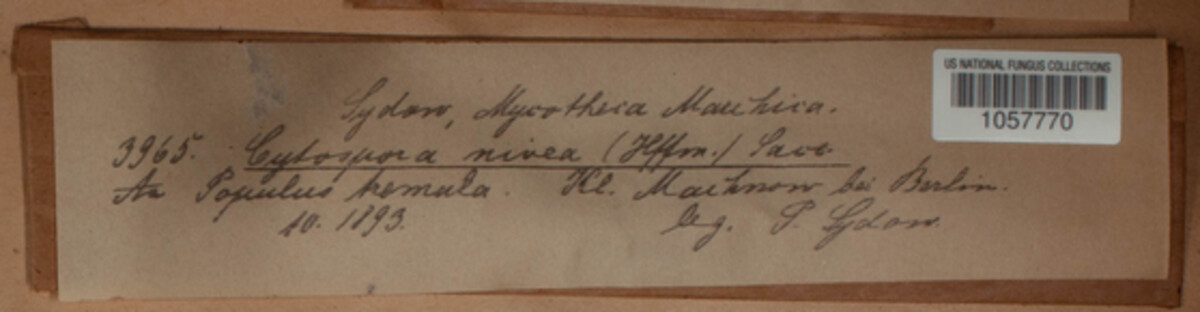 US NATIONAL FUNGUS COLLECTIONS
1057770
Sydow, Mycotheca Marchica.
3965. Cytospora nivea (Hffm.) Sacc.
An Populus tremula. Kl. Machnow bei Berlin.
10. 1893. leg. P. Sydow.